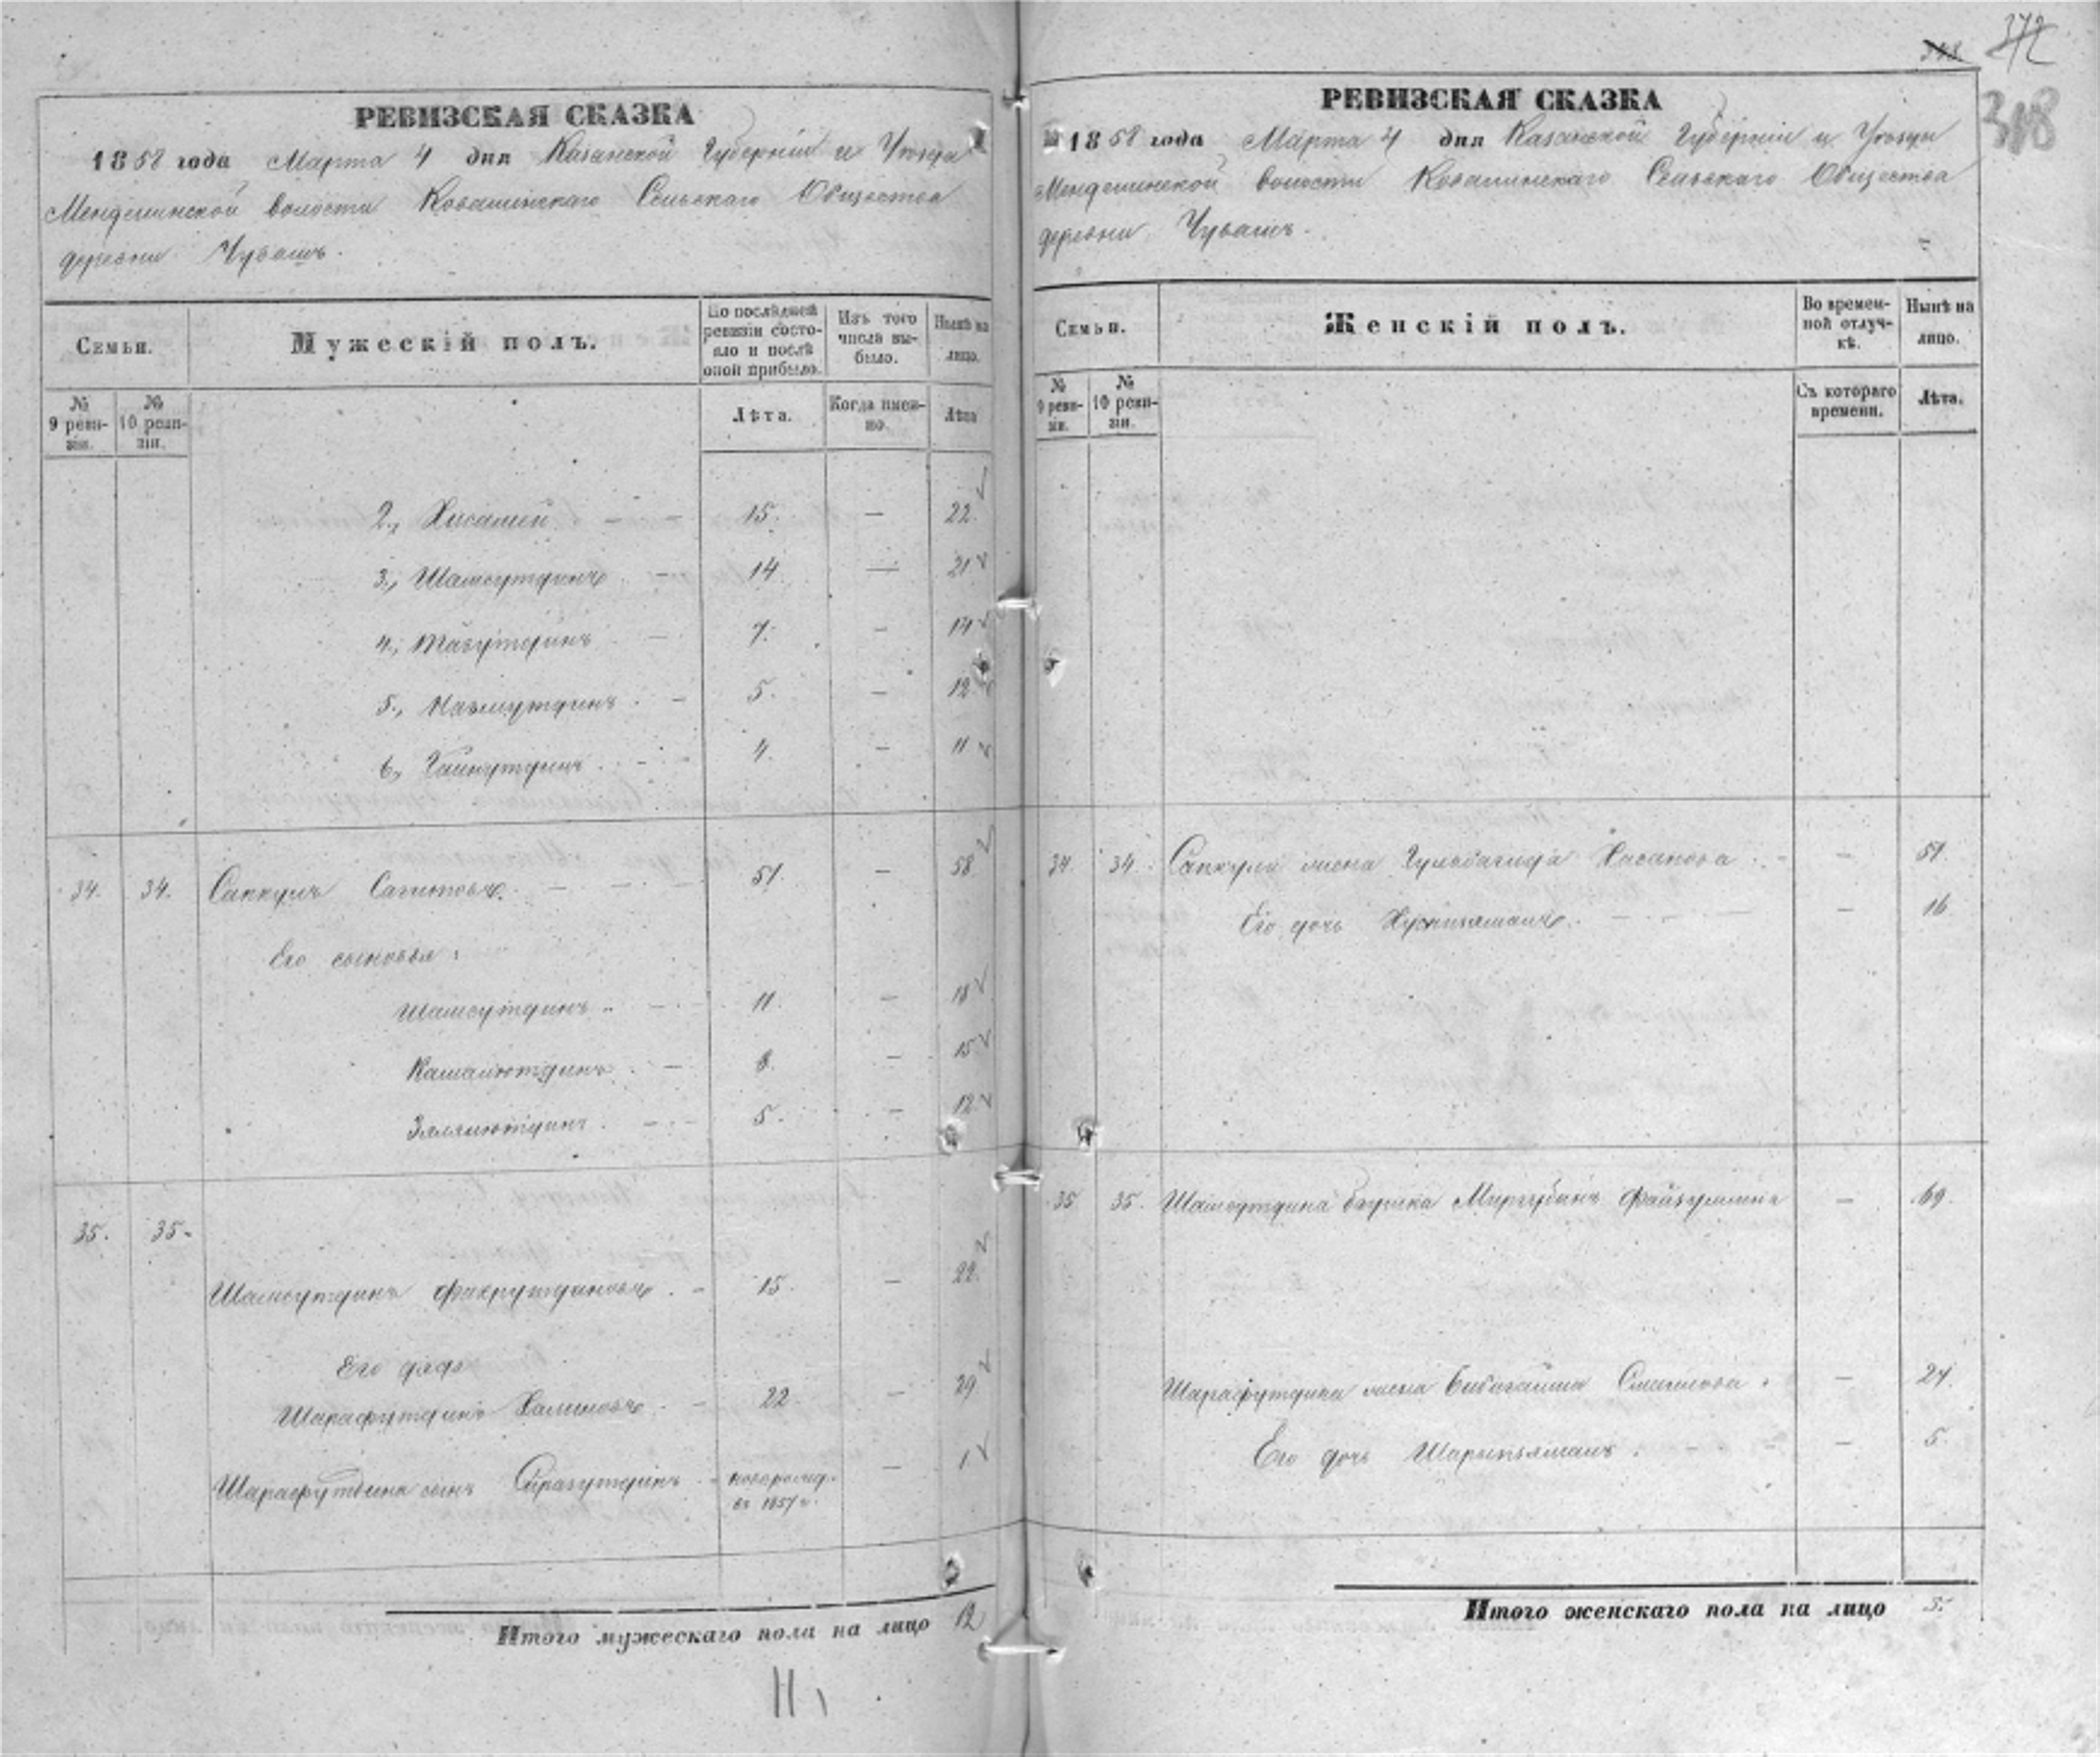 372
318
РЕВИЗСКАЯ СКАЗКА
1858 года Марта 4 дня Казанской Губерніи и Уѣзда
Менделинской волости Ковалинскаго Сельскаго Общества
деревни Чувашъ.
Семьи.
Мужескій полъ.
По послѣдней ревизіи состояло и послѣ оной прибыло.
Изъ того числа выбыло.
Нынѣ на лицо.
№ 9 ревизіи.
№ 10 ревизіи.
Лѣта.
Когда именно.
Лѣта
2., 15. — 22.
3., Шамсутдинъ — 14. — 21
4., Тазутдинъ — 7. — 14
5., Назмутдинъ — 5. — 12
6., Гайнутдинъ — 4. — 11
34. 34. Сапкулъ Сагитовъ. — 51. — 58
Его сыновья:
Шамсутдинъ — 11. — 18
Камалютдинъ — 8. — 15
Зялялютдинъ — 5. — 12
35. 35.
Шамсутдинъ Фахрутдиновъ. — 15. — 22.
Его дядя
Шарафутдинъ Халитовъ — 22. — 29
Шарафутдина сынъ Сиразутдинъ — новорожд. — 1
въ 1857 г.
Итого мужескаго пола на лицо 12
11
РЕВИЗСКАЯ СКАЗКА
1858 года Марта 4 дня Казанской Губерніи и Уѣзда
Менделинской волости Ковалинскаго Сельскаго Общества
деревни Чувашъ.
Семьи.
Женскій полъ.
Во временной отлучкѣ.
Нынѣ на лицо.
№ 9 ревизіи.
№ 10 ревизіи.
Съ котораго времени.
Лѣта.
34. 34. Сапкула жена Хасанова — 51.
Его дочь — 16
35 35. Шамсутдина Файзуллина — 69.
Шарафутдина жена Смаилова — 27.
Его дочь — 5.
Итого женскаго пола на лицо 5.